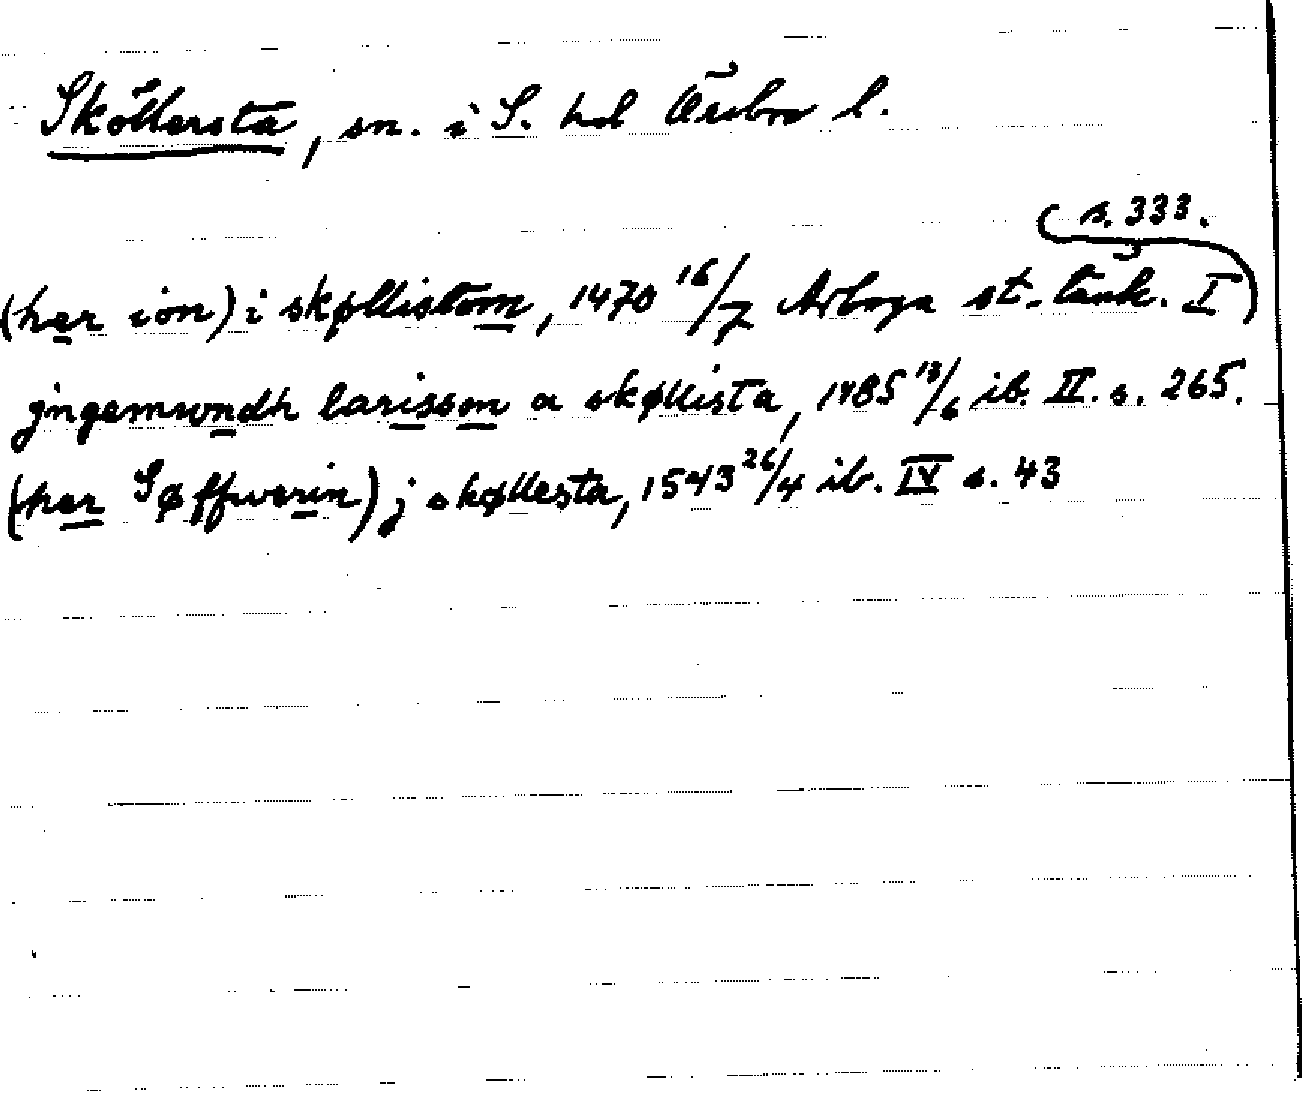 Sköllersta, sn. i S. hd Örebro l.
s. 333.
(her ion) i skøllistom, 1470 16/7 Arboga st. tänk. I
jngemwndh larisson a skøllista, 1485 13/6 ib. II. s. 265.
(her Søffwerin) j skøllesta, 1543 26/4 ib. IV s. 43